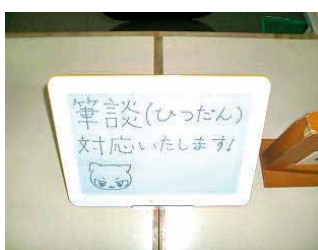 筆談(ひつだん)
対応いたします!